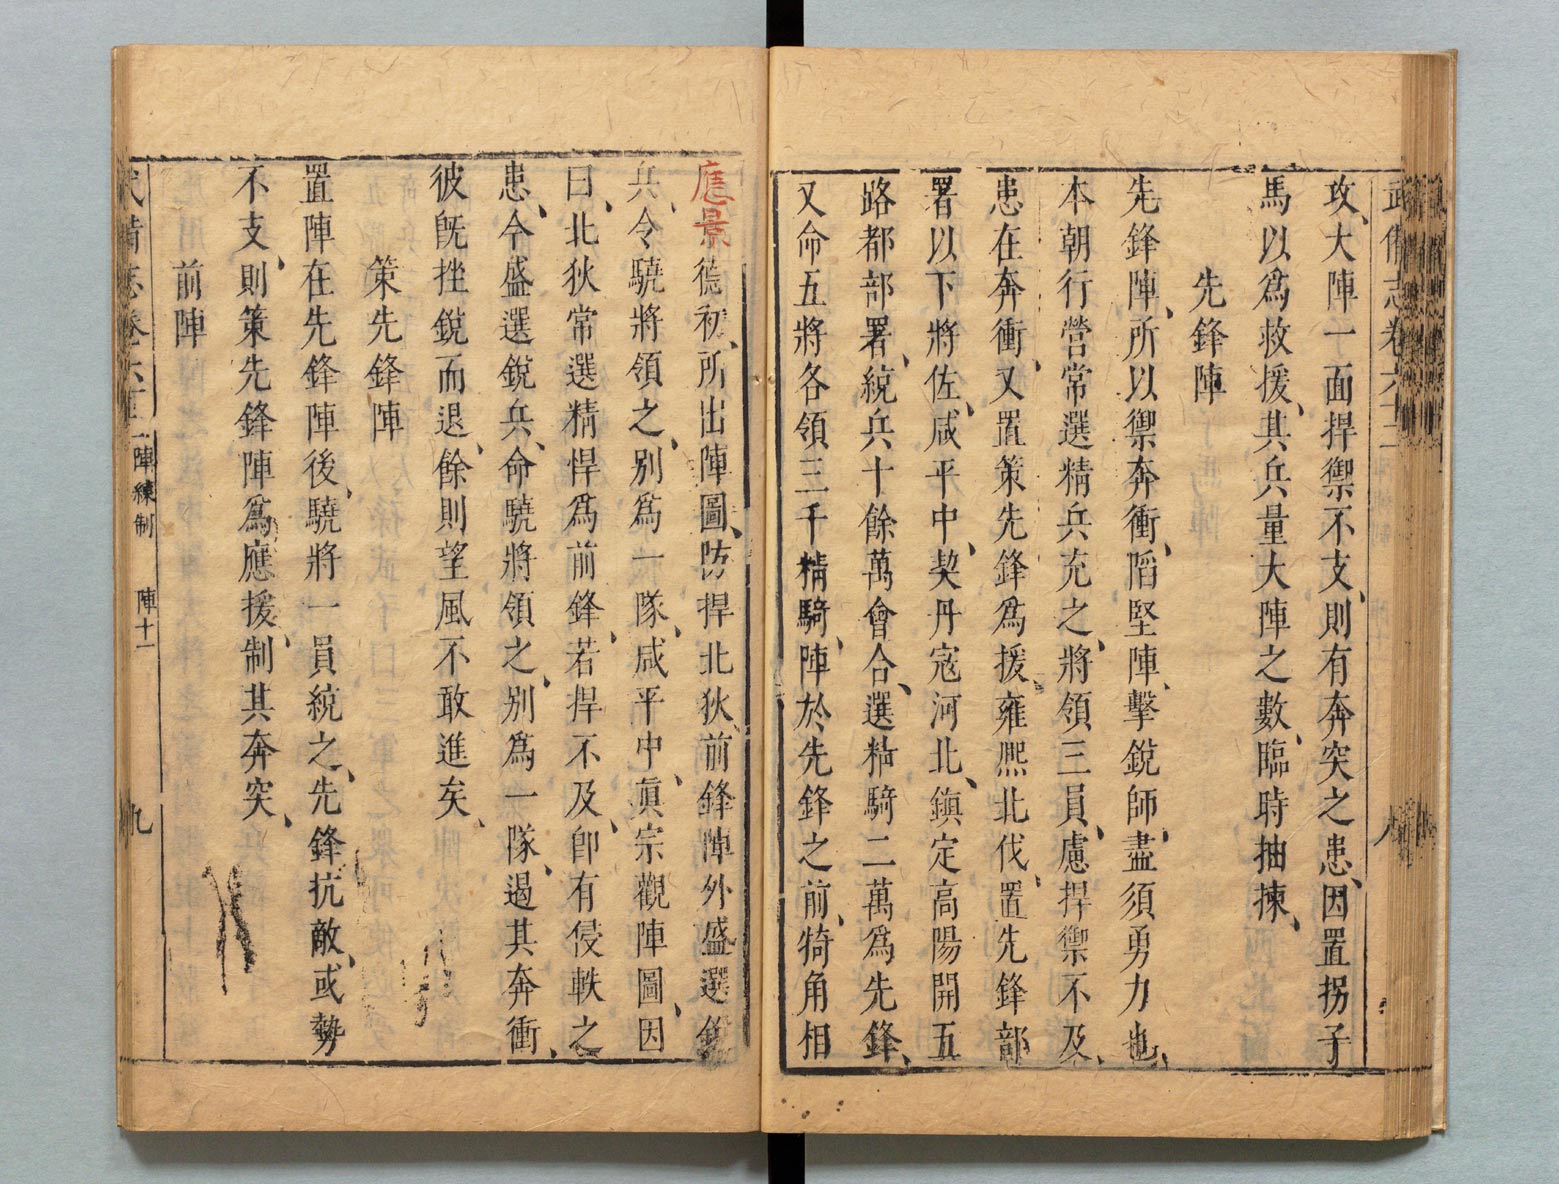 武備志卷六十二
攻、大陣一面捍禦不支、則有奔突之患、因置拐子
馬以爲救援、其兵量大陣之數、臨時抽揀、
先鋒陣
先鋒陣、所以禦奔衝、陷堅陣、擊銳師、盡須勇力也、
本朝行營常選精兵充之、將領三員、慮捍禦不及、
患在奔衝、又置策先鋒爲援、雍熙北伐、置先鋒部
署以下將佐、咸平中、契丹寇河北、鎮定高陽開五
路都部署、統兵十餘萬會合、選精騎二萬爲先鋒、
又命五將各領三千精騎、陣於先鋒之前、犄角相
應景德初、所出陣圖、防捍北狄、前鋒陣外盛選銳
兵、令驍將領之、別爲一隊、咸平中、真宗觀陣圖、因
曰、北狄常選精悍爲前鋒、若捍不及、卽有侵軼之
患、今盛選銳兵、命驍將領之、別爲一隊、遏其奔衝、
彼旣挫銳而退、餘則望風不敢進矣、
策先鋒陣
置陣在先鋒陣後、驍將一員統之、先鋒抗敵、或勢
不支、則策先鋒陣爲應援、制其奔突、
前陣
武備志卷六十二 陣練制 陣十一 九